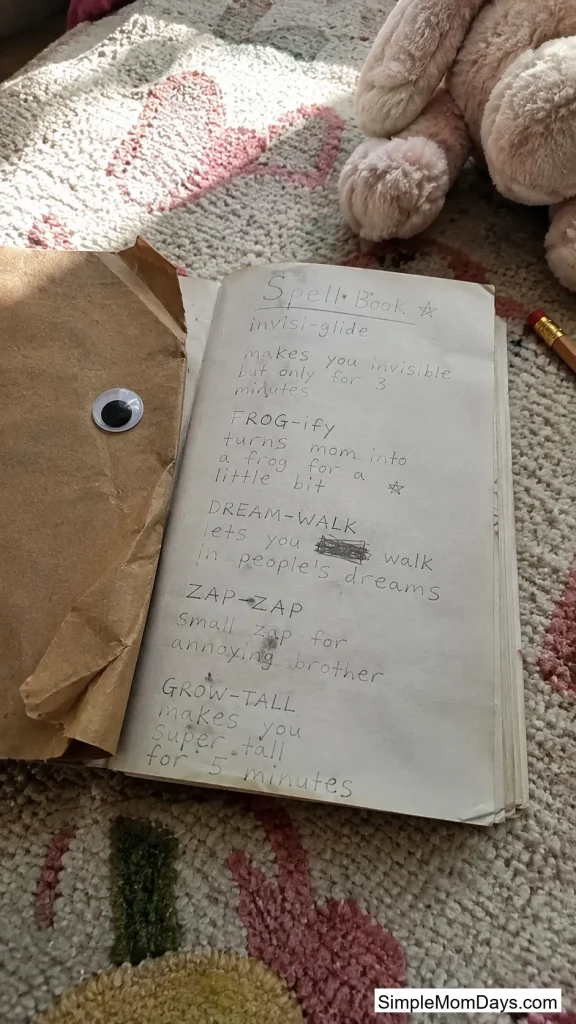 Spell Book ☆
invisi-glide
makes you invisible
but only for 3
minutes
FROG-ify
turns mom into
a frog for a
little bit ☆
DREAM-WALK
lets you walk
in people's dreams
ZAP-ZAP
small zap for
annoying brother
GROW-TALL
makes you
super tall
for 5 minutes
SimpleMomDays.com